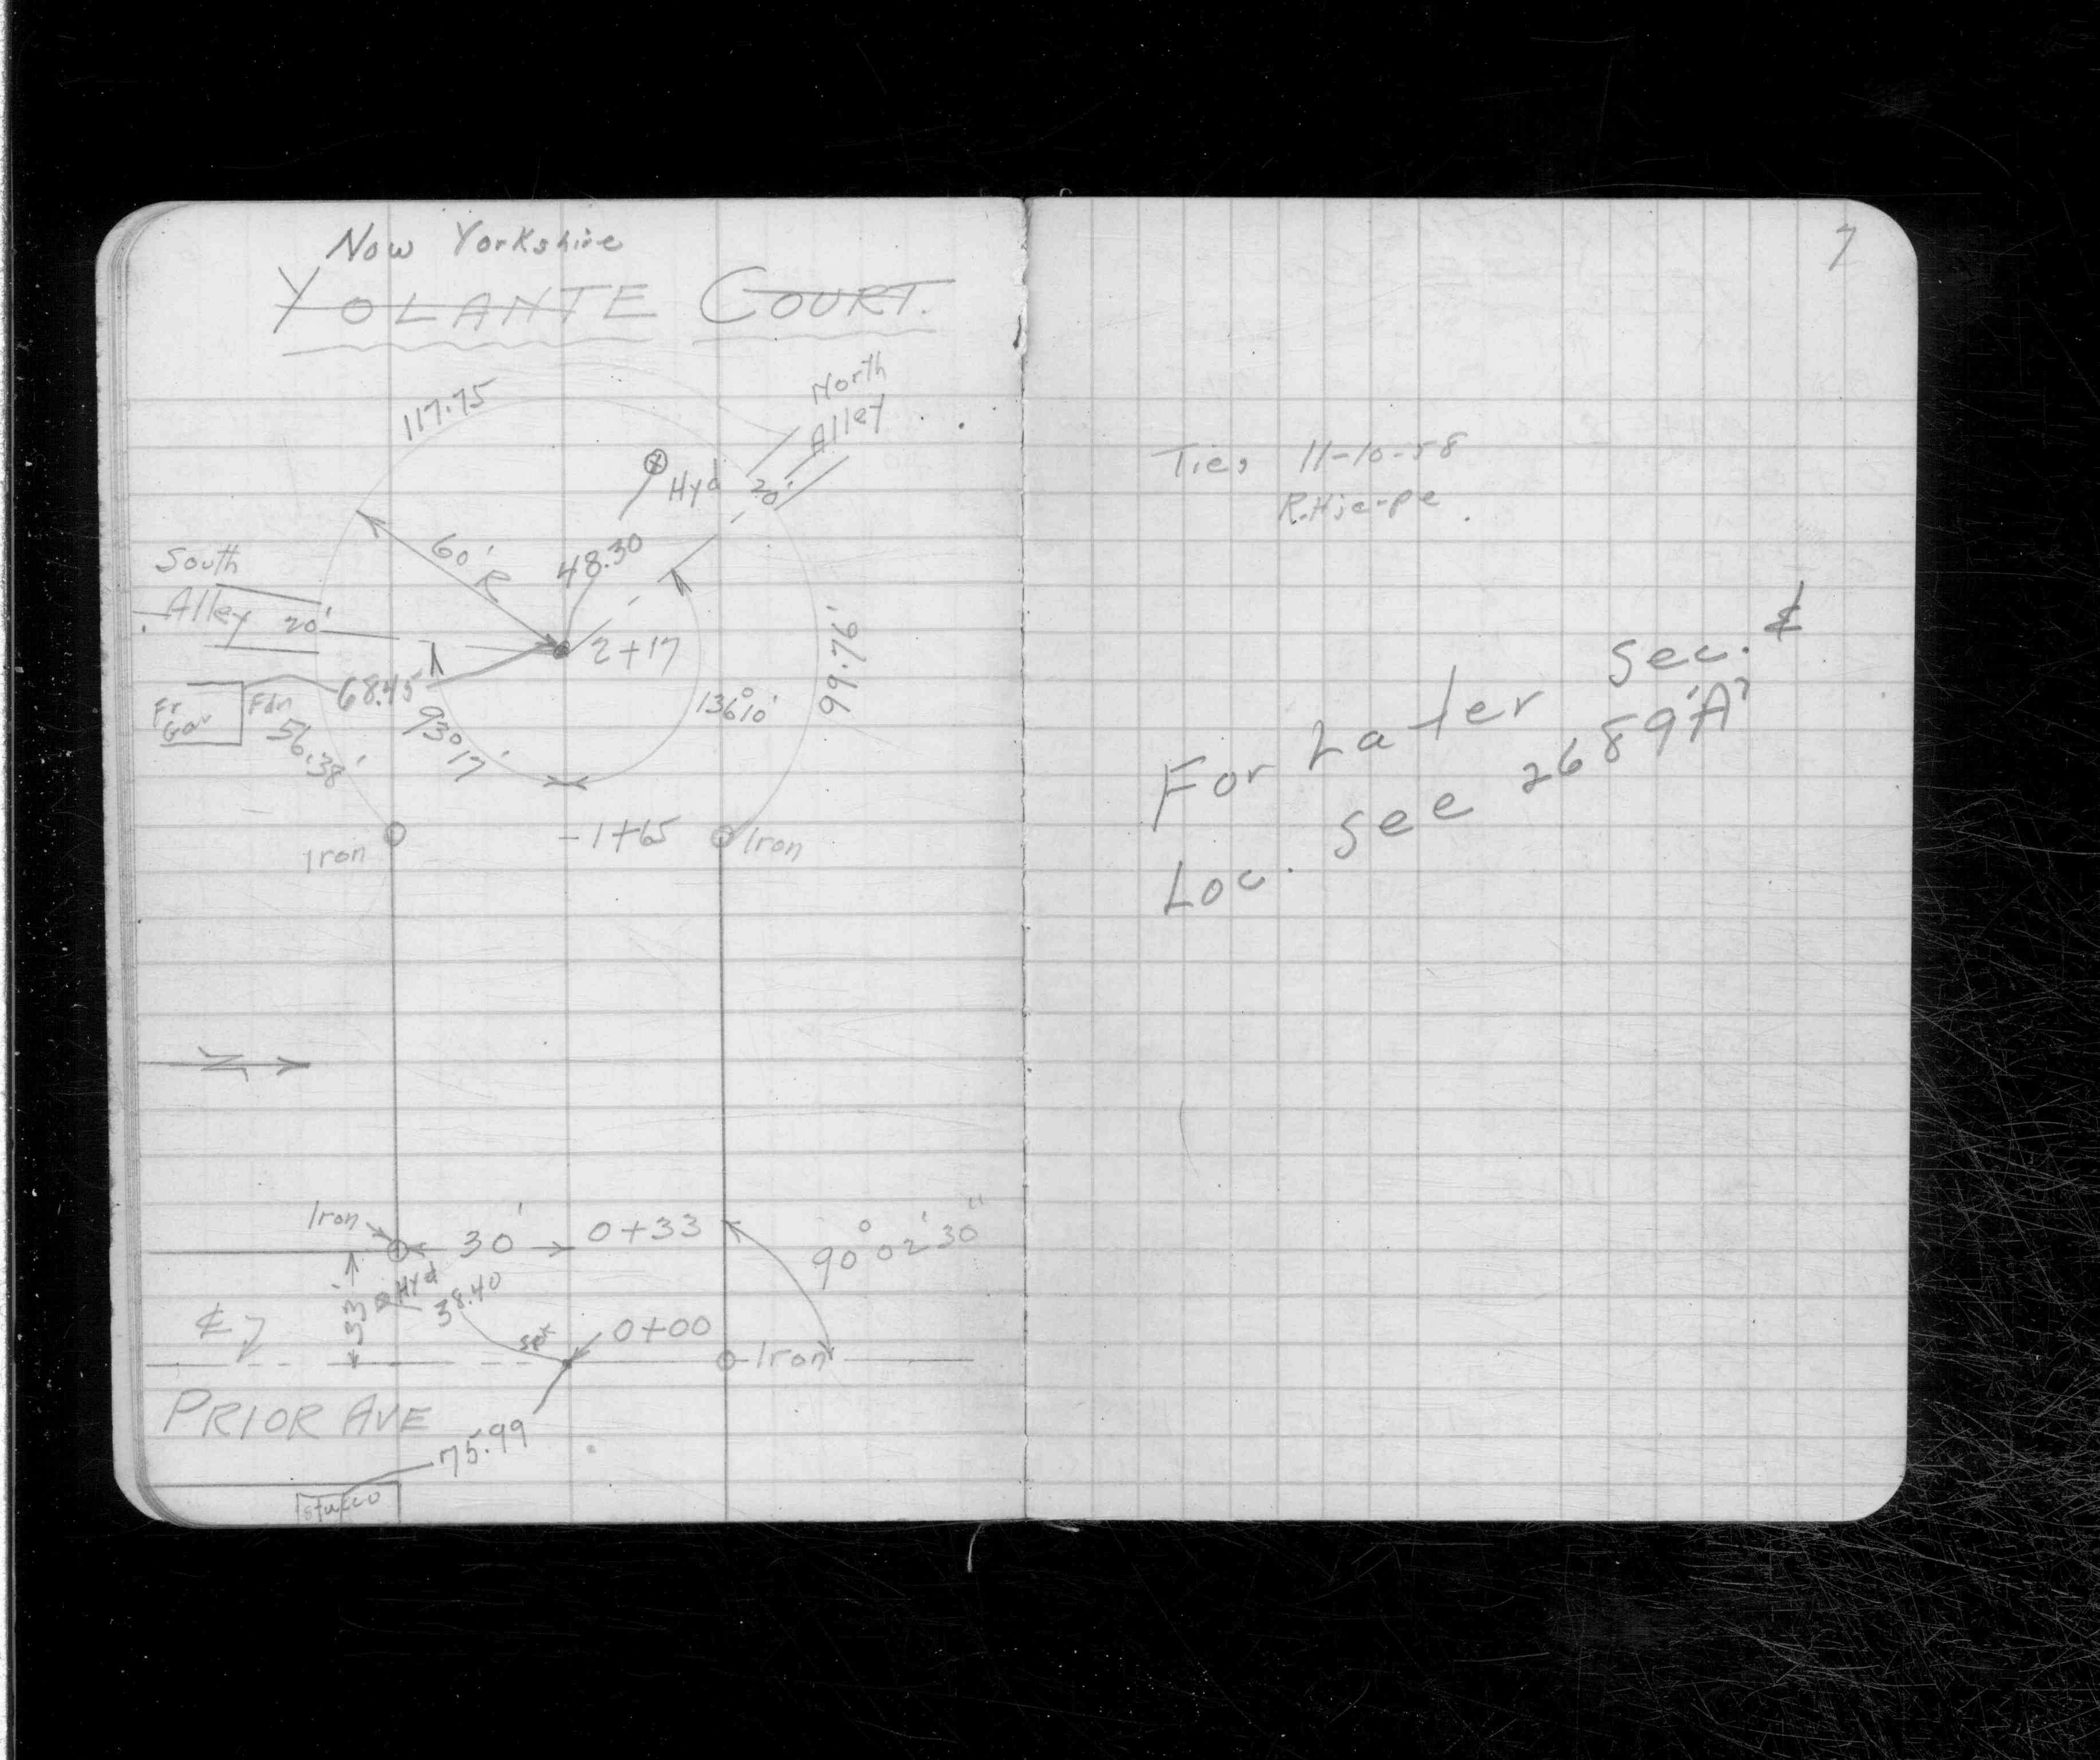 Now Yorkshire
YOLANTE COURT.
117.75
North
Alley
Hyd
20'
60' R
48.30
South
Alley 20'
2+17
68.45
Fr
Gar
Fdn
56.38'
93°17'
136°10'
99.76'
Iron
1+65
Iron
Iron
30'
0+33
90° 02' 30"
Hyd
38.40
33'
℄
spk
0+00
Iron
PRIOR AVE
75.99
stucco
7
Ties 11-10-58
For Later Sec. &
Loc. see 2689'A'